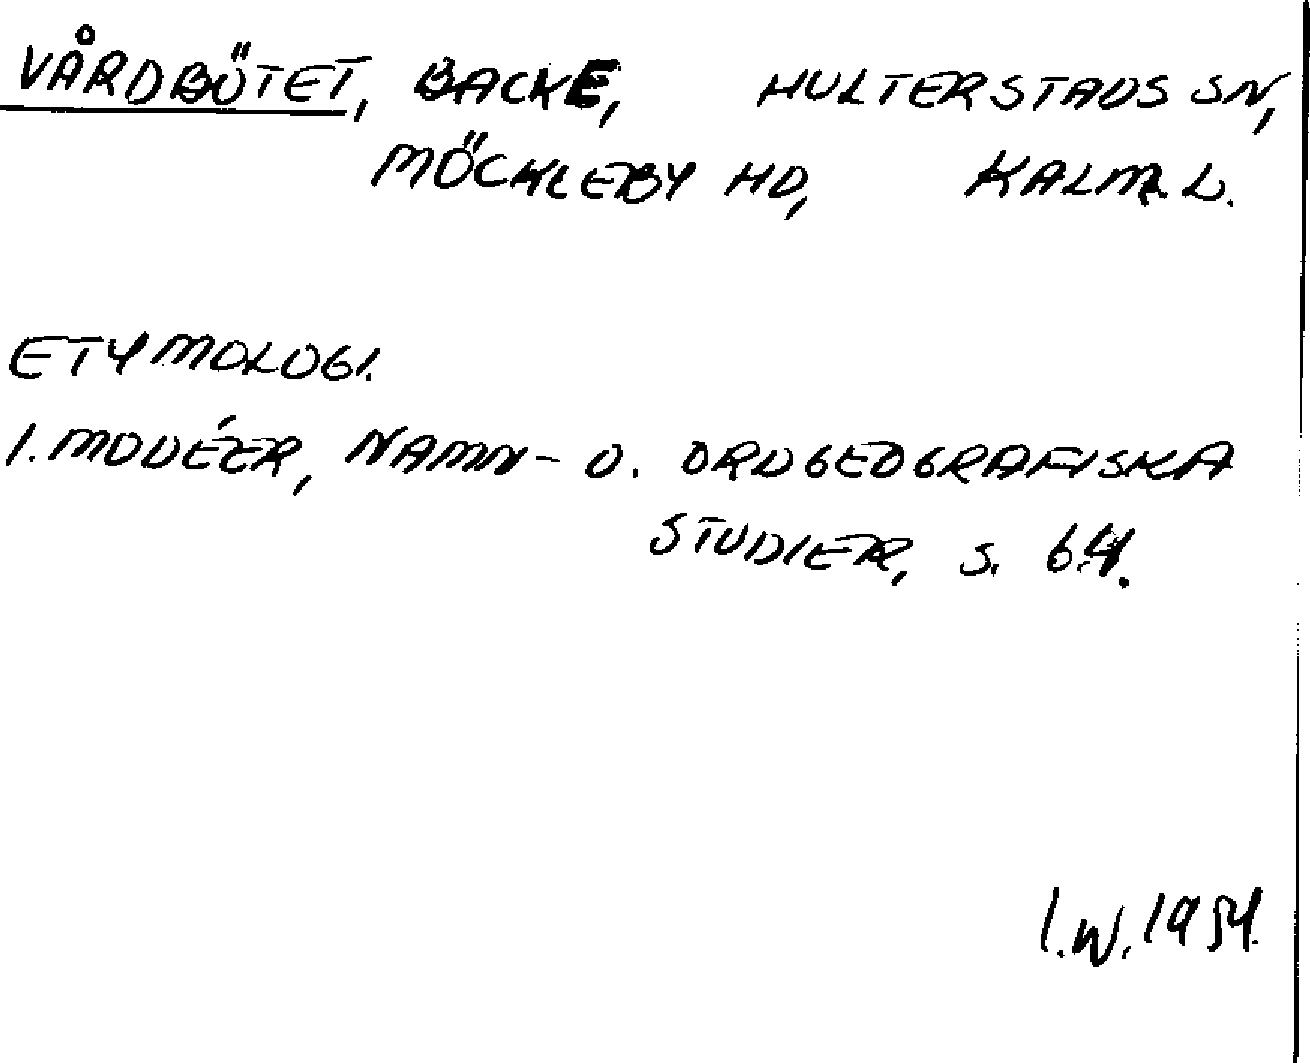 VÅRDBÖTET, BACKE, HULTERSTADS SN,
MÖCKLEBY HD, KALM. L.
ETYMOLOGI.
I. MODÉER, NAMN- O. ORDGEOGRAFISKA
STUDIER, S. 64.
I.W. 1954.